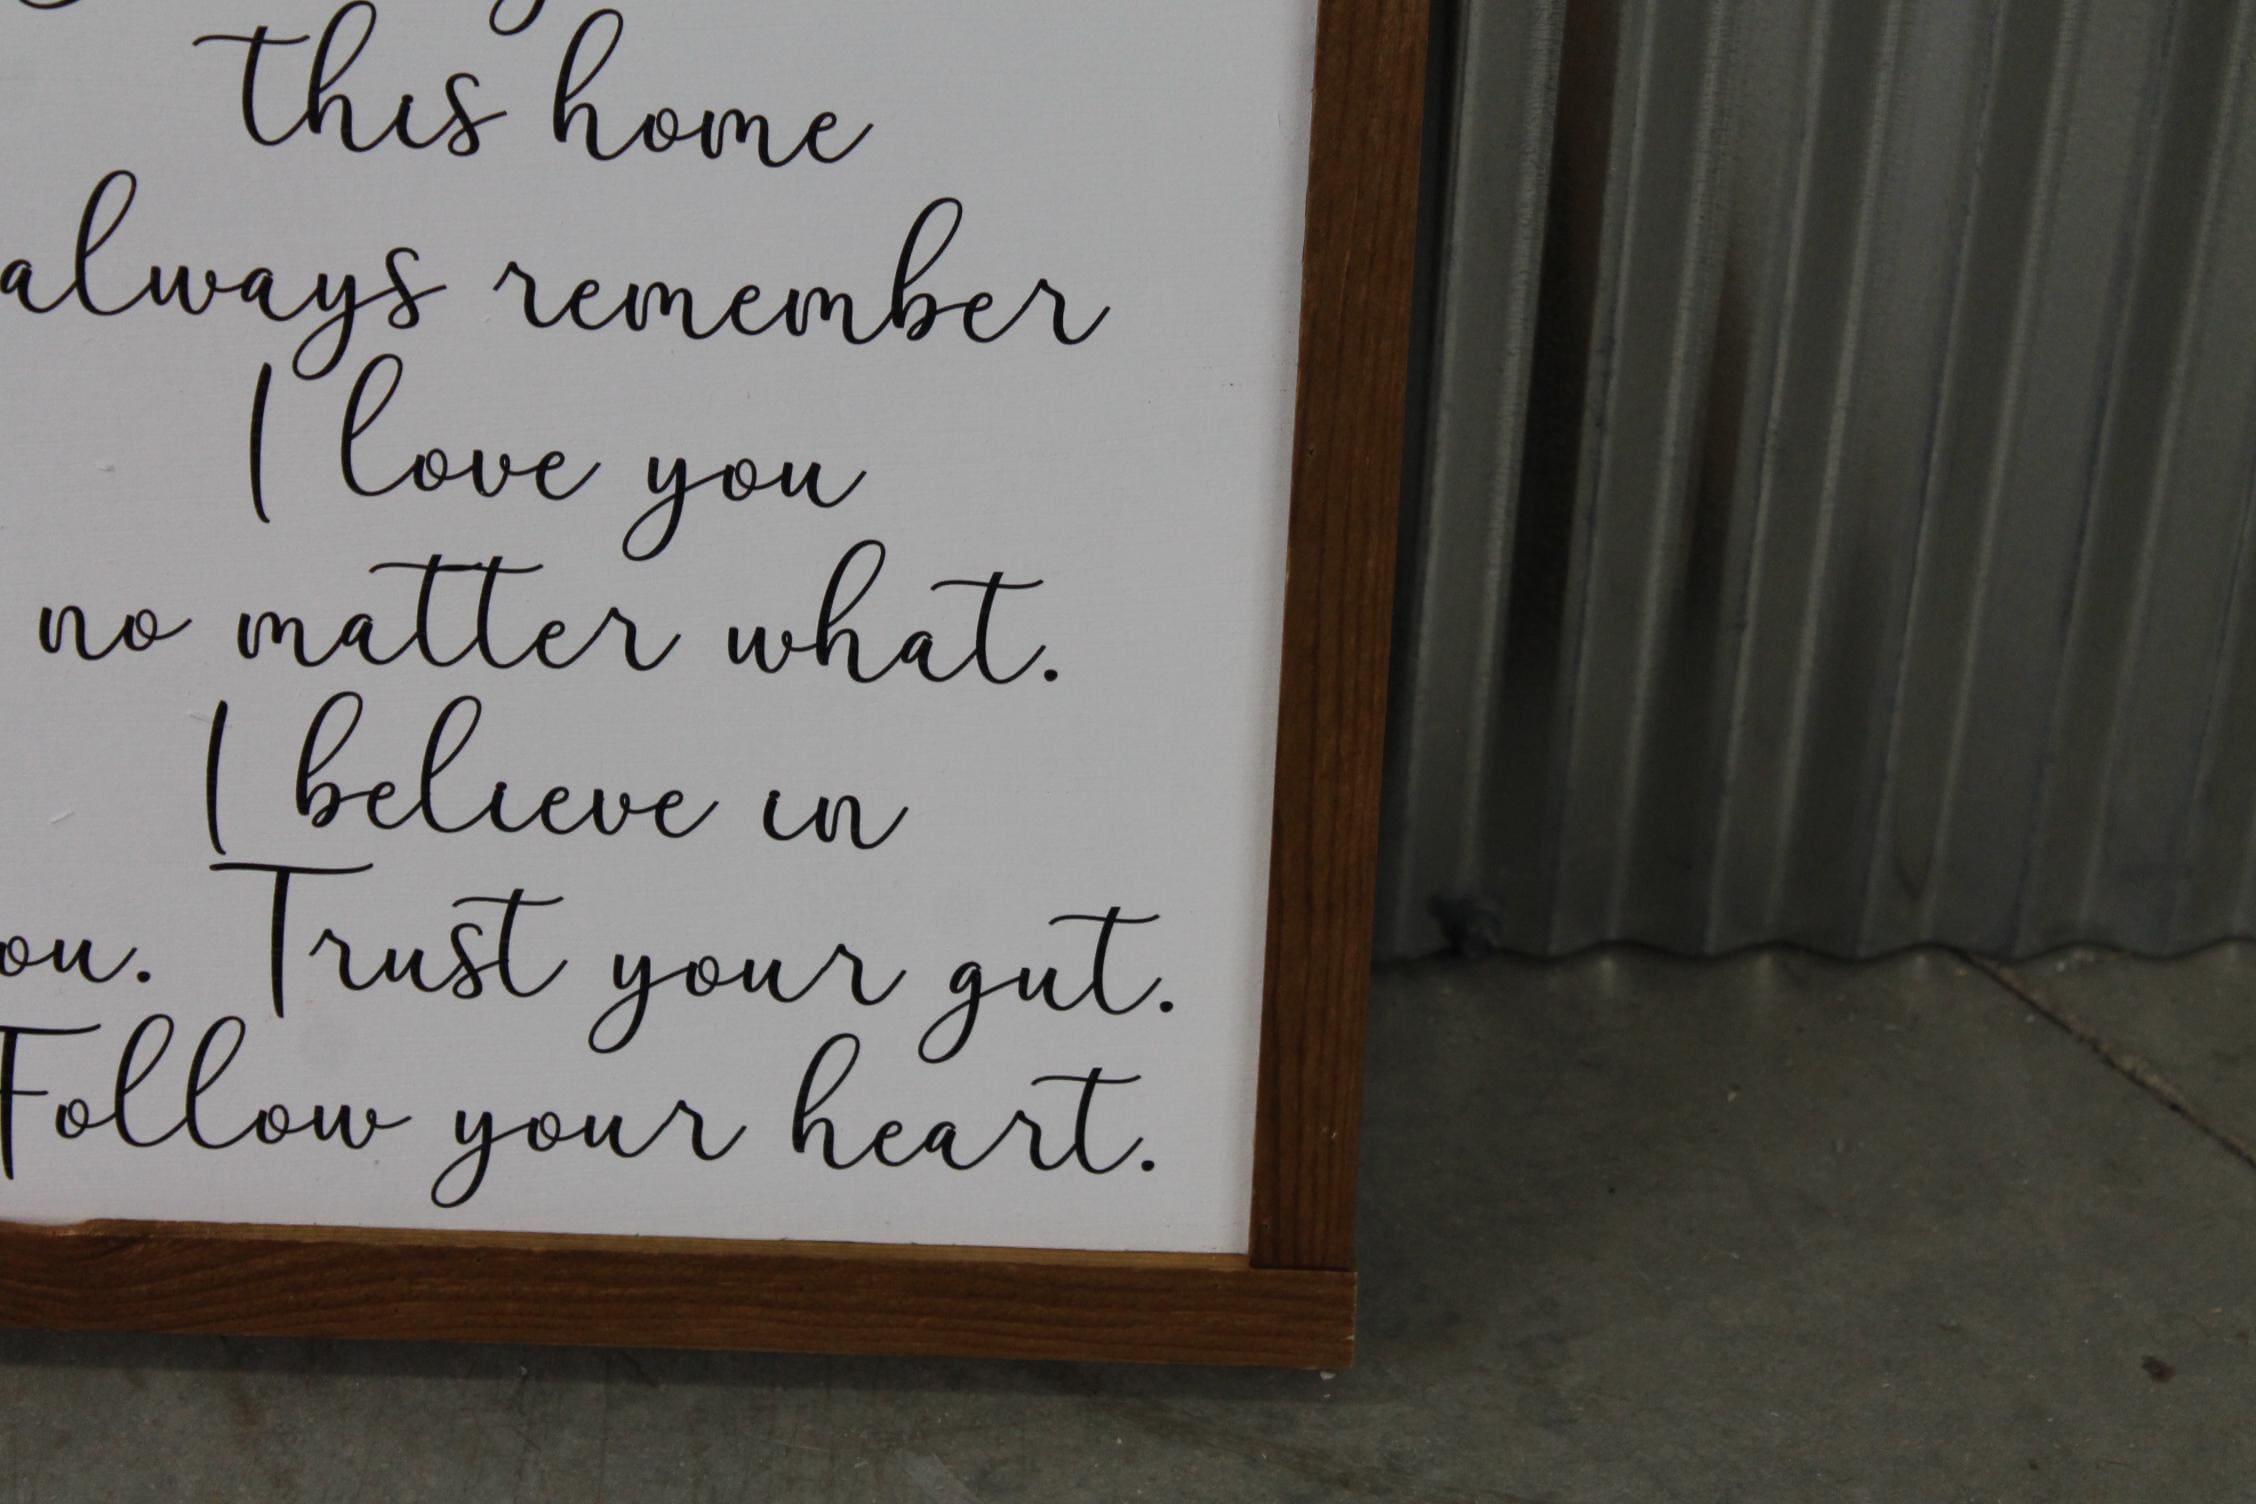 this home
always remember
I love you
no matter what.
I believe in
ou. Trust your gut.
Follow your heart.